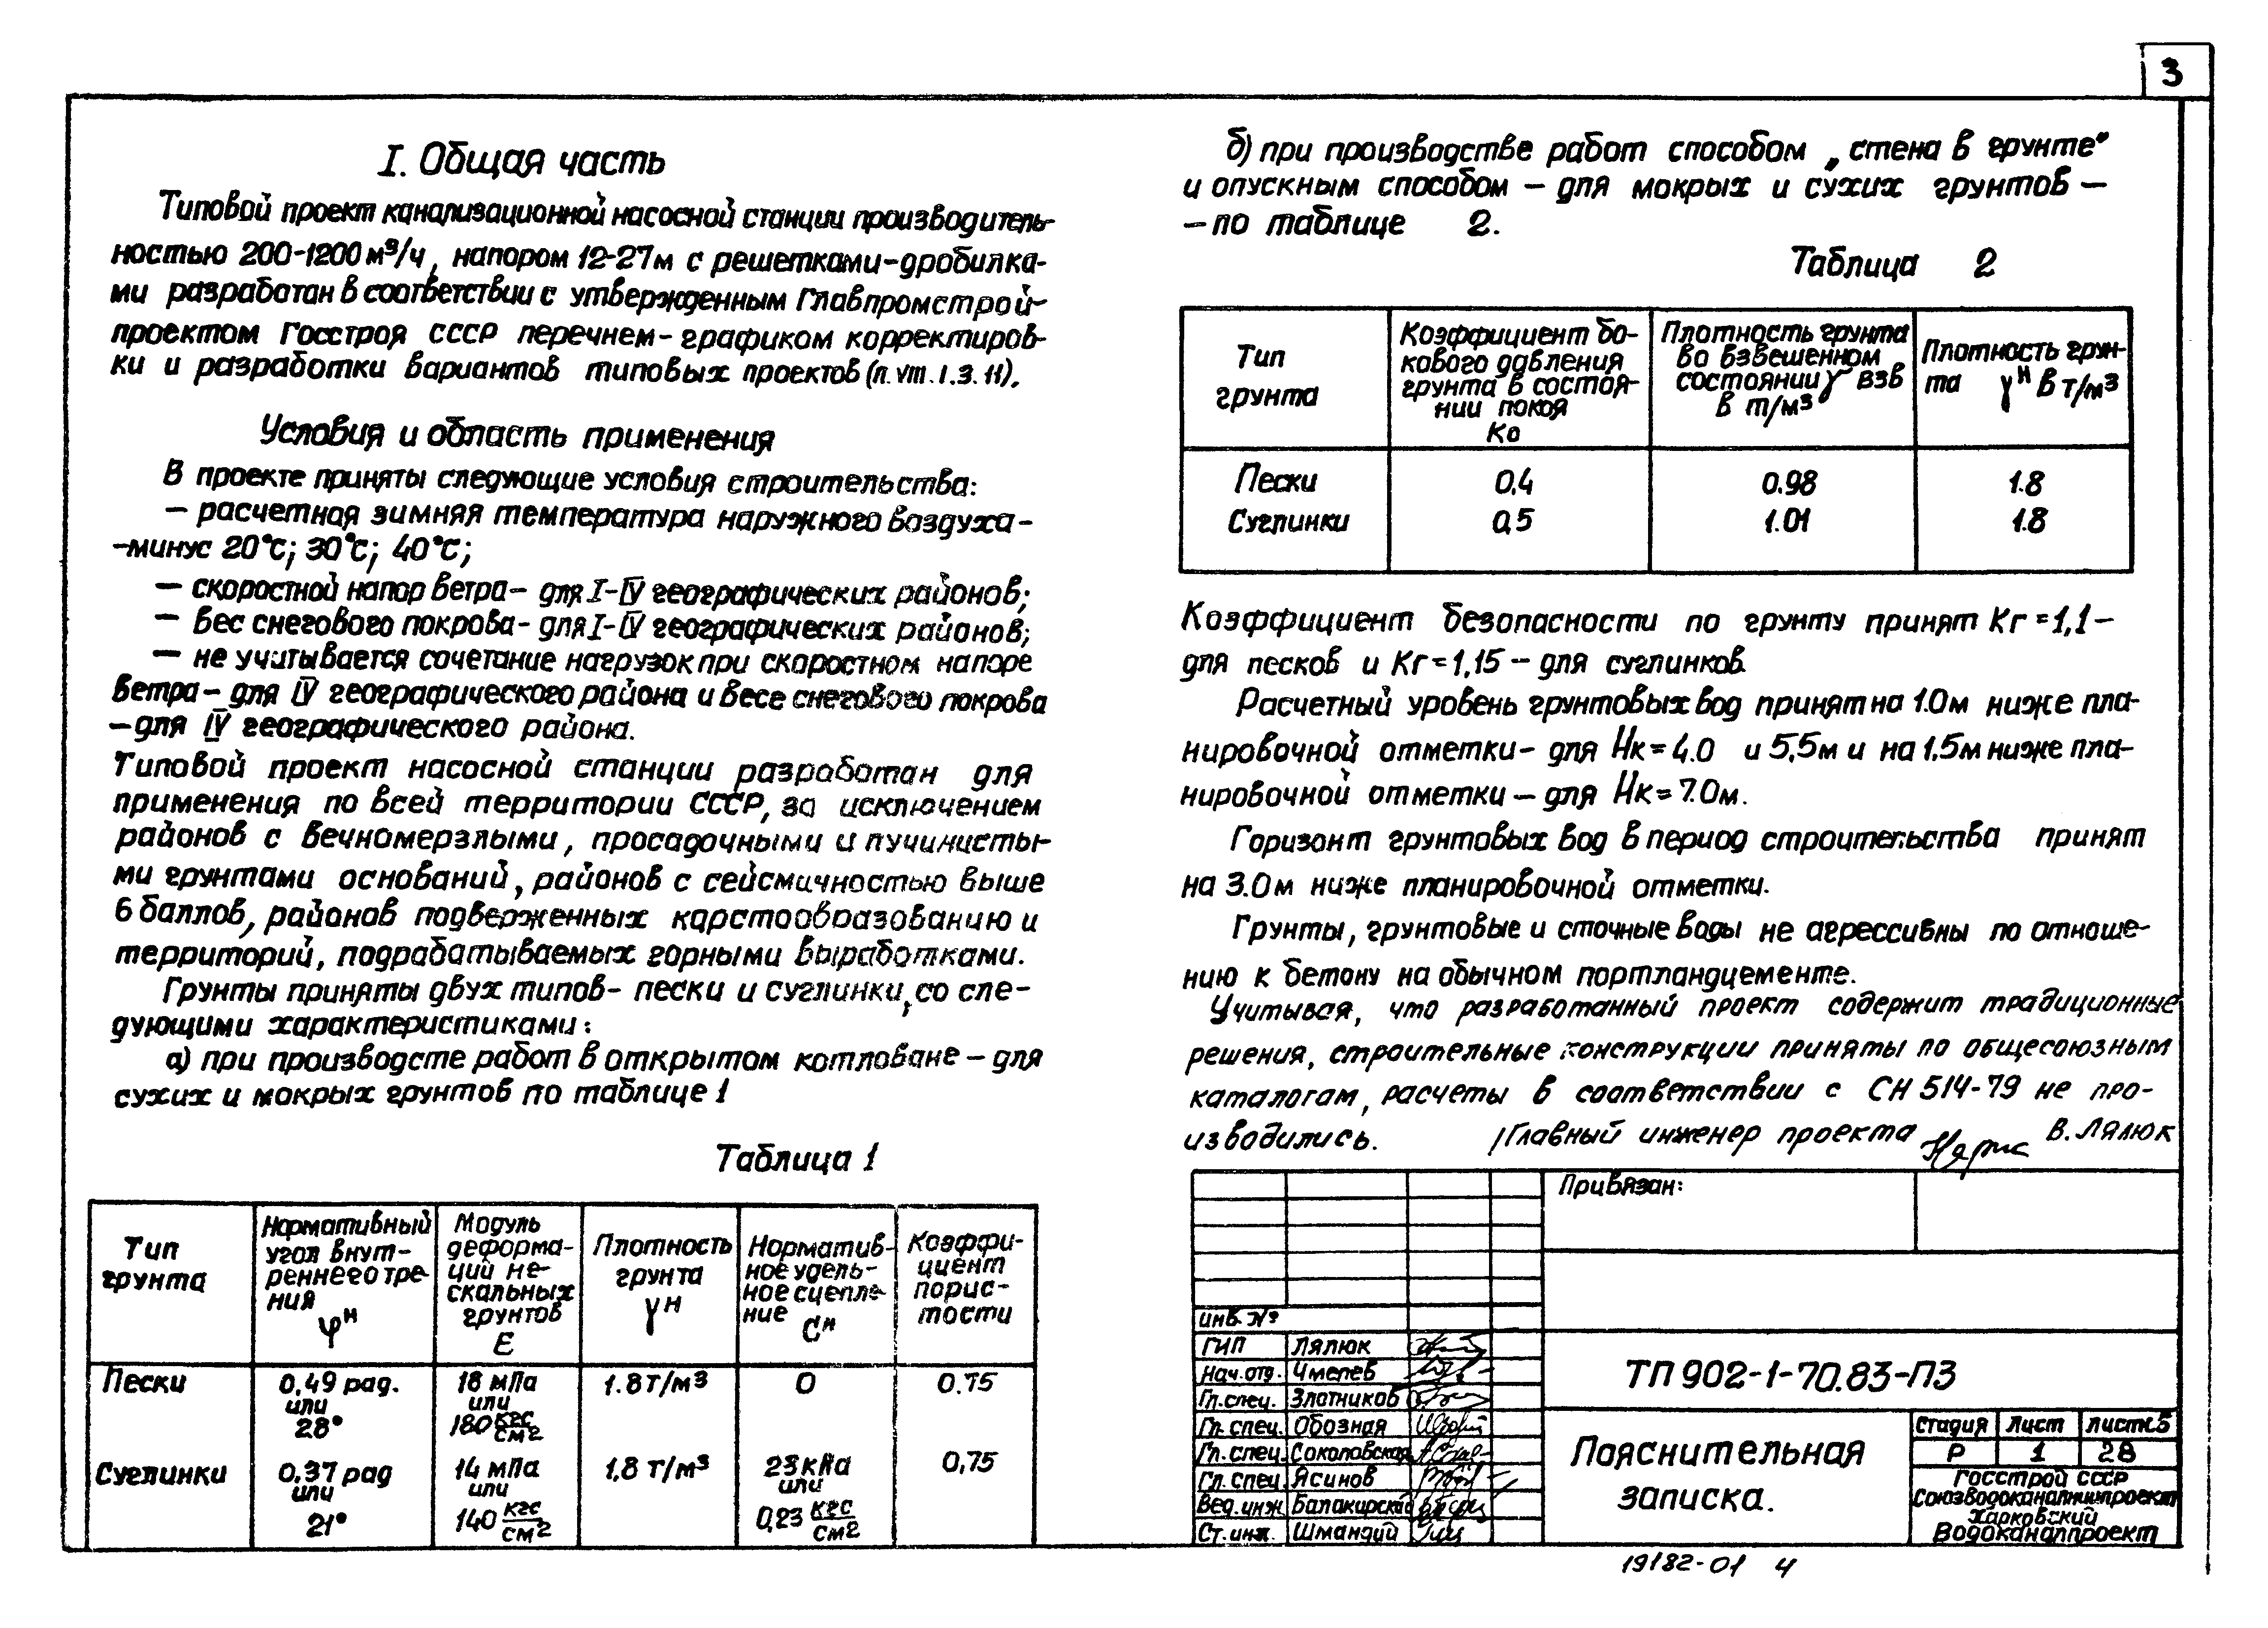 3
I. Общая часть
Типовой проект канализационной насосной станции производитель-
ностью 200-1200 м³/ч, напором 12-27м с решетками-дробилка-
ми разработан в соответствии с утвержденным Главпромстрой-
проектом Госстроя СССР перечнем-графиком корректиров-
ки и разработки вариантов типовых проектов (п. VIII. 1. 3. 11).
Условия и область применения
В проекте приняты следующие условия строительства:
— расчетная зимняя температура наружного воздуха -
-минус 20°С; 30°С; 40°С;
— скоростной напор ветра - для I-IV географических районов;
— вес снегового покрова - для I-IV географических районов;
— не учитывается сочетание нагрузок при скоростном напоре
ветра - для IV географического района и весе снегового покрова
-для IV географического района.
Типовой проект насосной станции разработан для
применения по всей территории СССР, за исключением
районов с вечномерзлыми, просадочными и пучинисты-
ми грунтами оснований, районов с сейсмичностью выше
6 баллов, районов подверженных карстообразованию и
территорий, подрабатываемых горными выработками.
Грунты приняты двух типов - пески и суглинки, со сле-
дующими характеристиками:
а) при производсте работ в открытом котловане - для
сухих и мокрых грунтов по таблице 1
Таблица 1
Тип грунта
Нормативный угол внут- реннего тре- ния φн
Модуль деформа- ций не- скальных грунтов Е
Плотность грунта γн
Норматив- ное удель- ное сцепле- ние Сн
Коэффи- циент порис- тости
Пески 0.49 рад. или 28° 18 мПа или 180 кгс/см2 1.8т/м3 0 0.75
Суглинки 0.37 рад или 21° 14 мПа или 140 кгс/см2 1.8 т/м3 23 кПа или 0,23 кгс/см2 0,75
б) при производстве работ способом „стена в грунте"
и опускным способом - для мокрых и сухих грунтов -
- по таблице 2.
Таблица 2
Тип грунта
Коэффициент бо- кового давления грунта в состоя- нии покоя Ко
Плотность грунта во взвешенном состоянии γ взв в т/м3
Плотность грун- та γн в т/м3
Пески 0.4 0.98 1.8
Суглинки 0,5 1.01 1.8
Коэффициент безопасности по грунту принят Кг=1,1-
для песков и Кг=1,15 - для суглинков.
Расчетный уровень грунтовых вод принят на 1.0м ниже пла-
нировочной отметки - для Нк=4.0 и 5,5м и на 1,5м ниже пла-
нировочной отметки - для Нк=7.0м.
Горизонт грунтовых вод в период строительства принят
на 3.0м ниже планировочной отметки.
Грунты, грунтовые и сточные воды не агрессивны по отноше-
нию к бетону на обычном портландцементе.
Учитывая, что разработанный проект содержит традиционные
решения, строительные конструкции приняты по общесоюзным
каталогам, расчеты в соответствии с СН 514-79 не про-
изводились. Главный инженер проекта В. Лялюк
Привязан:
инв. №
ГИП Лялюк
Нач.отд. Чмелев
Гл.спец. Златников
Гл. спец. Обозная
Гл. спец. Соколовская
Гл. спец. Ясинов
Вед.инж. Балакирский
Ст. инж. Шмандий
ТП 902-1-70.83-ПЗ
Пояснительная
записка.
Стадия Лист Листов
Р 1 28
Госстрой СССР
Союзводоканалниипроект
Харьковский
Водоканалпроект
19182-01 4